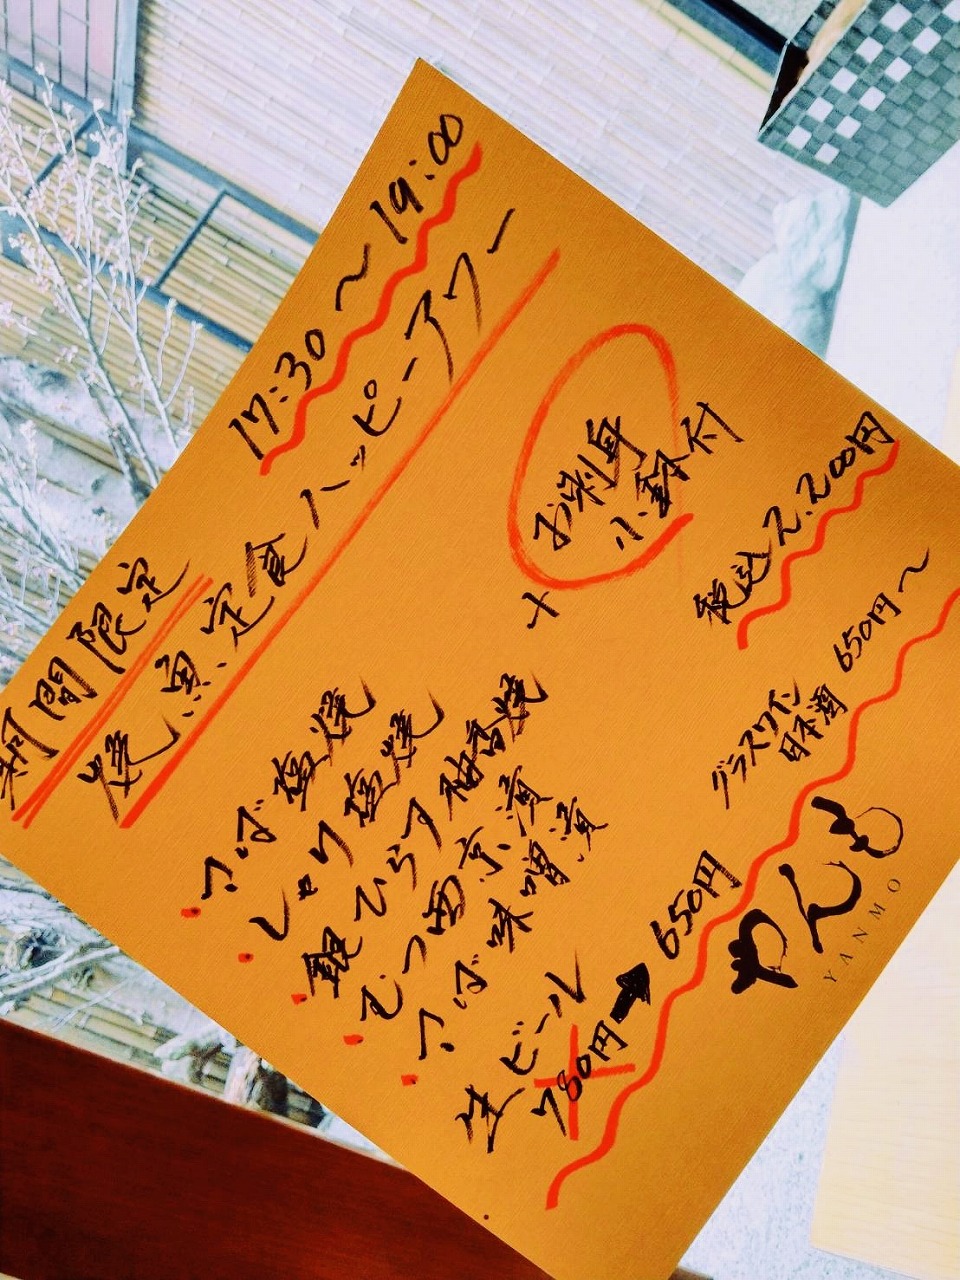 期間限定 17:30～19:00
焼魚定食ハッピーアワー
・さば塩焼
・しゃけ塩焼
・銀ひらす柚香焼
・むつ西京漬
・さば味噌漬
+
お刺身
小鉢付
税込2.200円
生ビール
780円→650円
グラスワイン
日本酒
650円～
やんも
YANMO